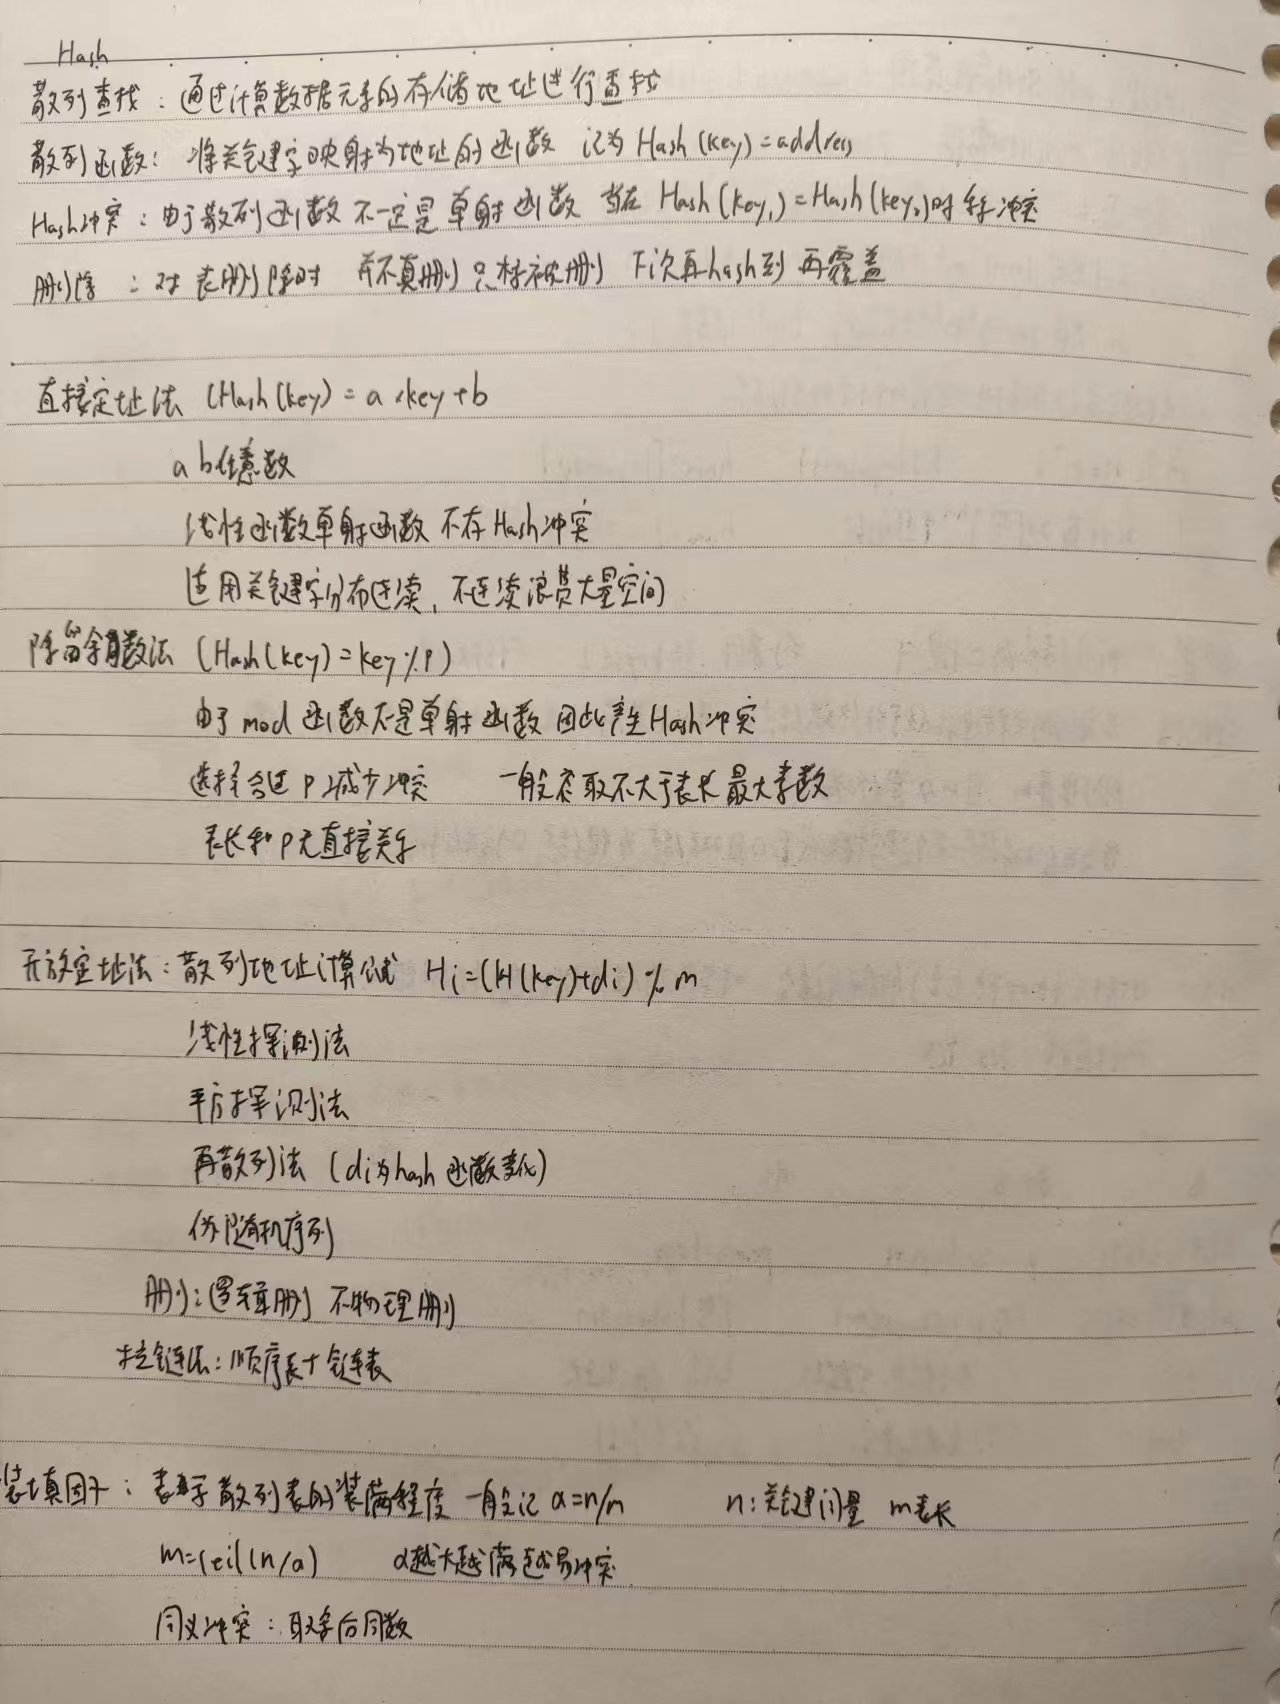 Hash
散列查找：通过计算数据元素的存储地址进行查找
散列函数：将关键字映射为地址的函数 记为 Hash(key)=address
Hash冲突：由于散列函数不一定是单射函数 当在 Hash(key₁)=Hash(key₂)时 称冲突
删除：对表删除时 并不真删 只标被删 下次再hash到 再覆盖
直接定址法 (Hash(key)=a×key+b
a b任意数
线性函数单射函数 不存Hash冲突
适用关键字分布连续，不连续浪费大量空间
除留余数法 (Hash(key)=key%P)
由于 mod 函数不是单射函数 因此产生Hash冲突
选择合适 P 减少冲突 一般 取不大于表长 最大素数
表长和P无直接关系
开放定址法：散列地址计算公式 Hi=(H(key)+di) % m
线性探测法
平方探测法
再散列法 (di为hash函数变化)
伪随机序列
删：逻辑删 不物理删
拉链法：顺序表+链表
装填因子：表示散列表的装满程度 一般记 α=n/m n:关键词量 m表长
m=ceil(n/α) α越大越满越易冲突
同义冲突：取余后同数